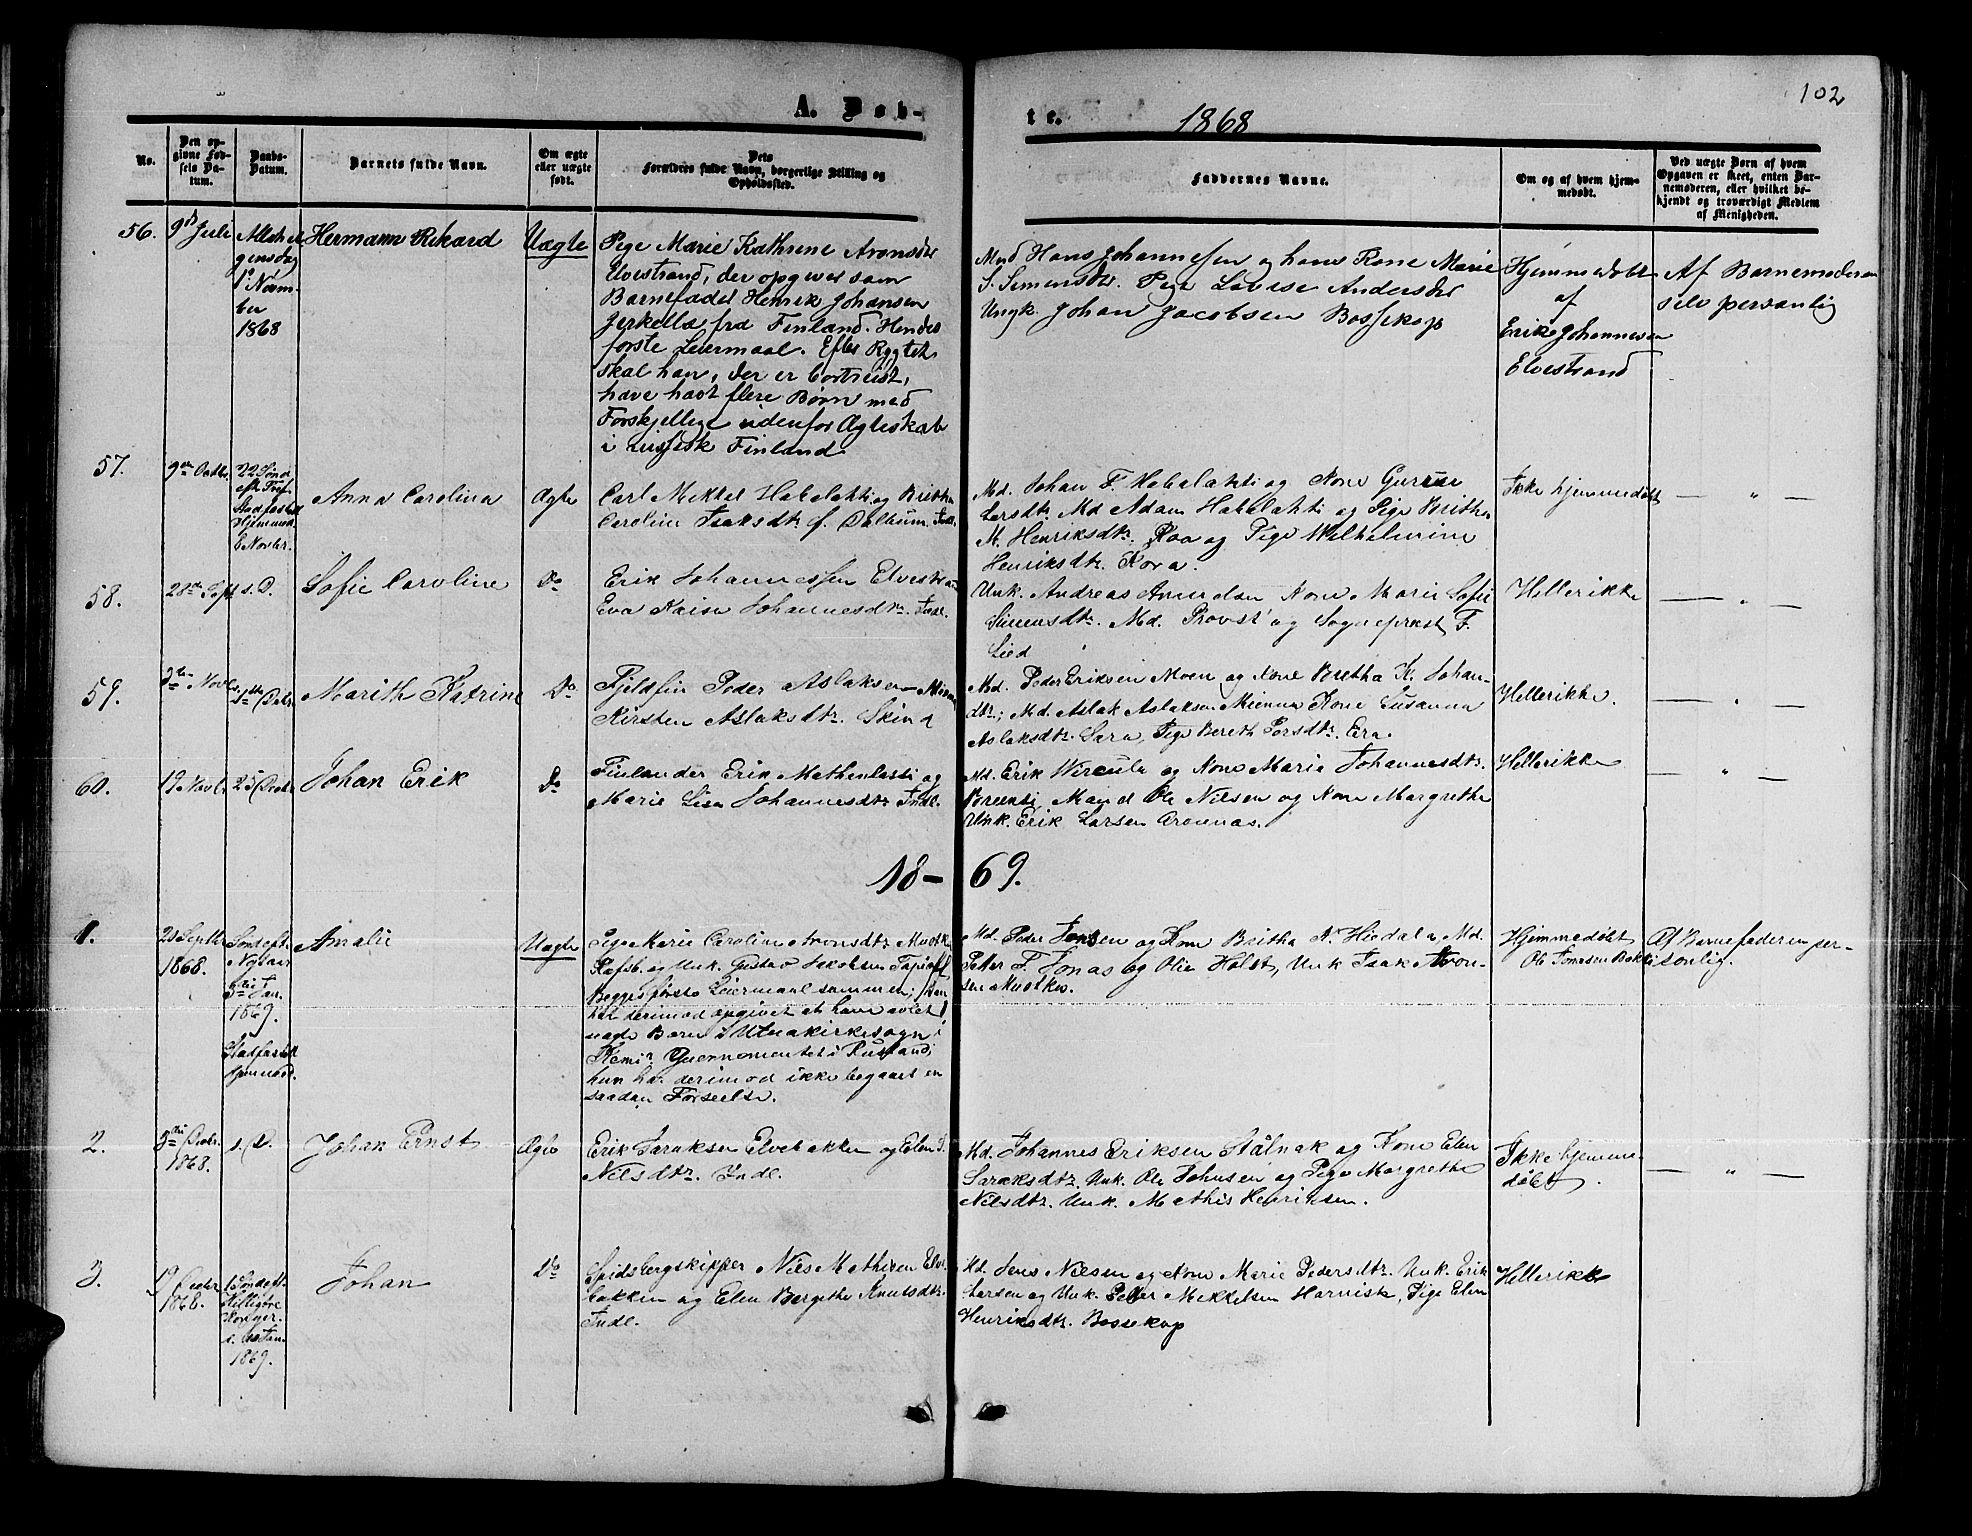 102
A. Døb-
te. 1868
No.
Den op-
givne Fød-
sels Da-
tum.
Daabs-
Datum.
Barnets fulde Navn.
Om ægte
eller uægte
født.
Dets
Forældres fulde Navn, borgerlige Stilling og
Opholdssted.
Faddernes Navne.
Om og af hvem hjem-
medøbt.
Ved uægte Born af hvem
Opgaven er skeet, enten Bar-
nemoderen, eller hvilket be-
kjendt og troværdigt Medlem
af Menigheden.
56.
9de Juli
Allehel
gensdag
1ste Novem-
ber
1868
Hermann Rikard
Uægte
Pige Marie Kathrine Aronsdtr
Elvestrand, der opgiver som
Barnefader Henrik Johansen
Jerkella fra Finland. Hendes
første Leiermaal. Efter Rygtet
skal han, der er bortreist,
have havt flere Børn med
Forskjellige udenfor Ægteskab
i russisk Finland.
Md Hans Johannesen og hans Kone Marie
S. Simensdtr. Pige Lovise Andersdtr
Ungk. Johan Jacobsen Bossekop
Hjemmedøbt
af
Erik Johannesen
Elvestrand
Af Barnemoderen
selv personlig
57.
9de Octbr.
22 Sønd
eft Tref
Stadfæstet
Hjemmed
6 Novbr.
Anna Carolina
Ægte
Carl Mikkel Habalakti og Britha
Carolin Isaksdtr f. Dalbum. Indl.
Md. Johan F. Habalakti og Kone Guru
Larsdtr Md Adam Habalakti og Pige Britha
M. Henriksdtr. Roa og Pige Wilhelmine
Henriksdtr. Kora.
Ikke hjemmedøbt
— " —
58.
28de Sept
s. D.
Sofie Caroline
Do
Erik Johannessen Elvestrand
Eva Kaisa Johannesdtr. Indl.
Unk. Andreas Amundsen Kone Marie Sofie
Simensdtr. Md. Provst og Sognepræst F.
Lied
Hellerikke
— " —
59.
3die Novbr.
1ste Decbr.
Marith Katrine
Do
Fjeldfin Peder Aslaksen Mienna
Kirsten Aslaksdtr. Skind
Md. Peder Eriksen Moen og Kone Beretha K. Johan-
dtr; Md. Aslak Aslaksen Mienna Kone Susanna
Aslaksdtr. Sara, Pige Bereth Larsdtr. Era.
Hellerikke.
— " —
60.
19 Novbr.
25 Decbr.
Johan Erik
Do
Finlænder Erik Mathenlasti og
Marie Lisa Johannesdtr Indl.
Md. Erik Wirkula og Kone Maria Johannesdtr.
Mand Ole Nilsen og Kone Margrethe
Unk. Erik Larsen Aronnæs.
Hellerikke
— " —
18-69.
1.
20 Septbr
1868.
Sønd eft.
Nytaar
3die Jan.
1869.
Stadfæstet
Hjemmed.
Amalie
Uægte
Pige Marie Caroline Aronsdtr Muotka
Rafsb. og Unk. Gustav Jakobsen
Begges første Leiermaal sammen; han
har derimod opgivet at have avlet 1
uægte Barn i Utnakirkesogn i
Kemi Guvernementet i Rusland;
hun har derimod ikke begaaet en
saadan Forseelse.
Md. Peder Jensen og Kone Britha N. Hiedala, Md.
Peter F. Jonas og Olia Holst, Unk Isak Aron-
sen Muotka.
Hjemmedøbt
Ole Tomesen Bakki
Af Barnefaderen per-
sonlig.
2.
3die Decbr.
1868.
s. D.
Johan Ernst
Ægte
Erik Isaksen Elvebakken og Elen I.
Nilsdtr. Indl.
Md. Johannes Eriksen Stålnak og Kone Elen
Isaraksdtr. Unk. Ole Johnsen og Pige Margrethe
Nilsdtr. Unk. Mathis Henriksen.
Ikke hjemme-
døbt.
— " —
3.
19 Decbr
1868.
1 Sønd eft.
Helligtre
Konger
1869.
Johan
Do
Spidsbergskipper Nils Mathisen Elve-
bakken og Elen Bergithe Knutsdtr.
Indl.
Md. Jens Nilsen og Kone Marie Pedersdtr. Unk. Erik
Larsen og Unk. Peter Mikkelsen Harnisk, Pige Elen
Henriksdtr. Bossekop
Hellerikke